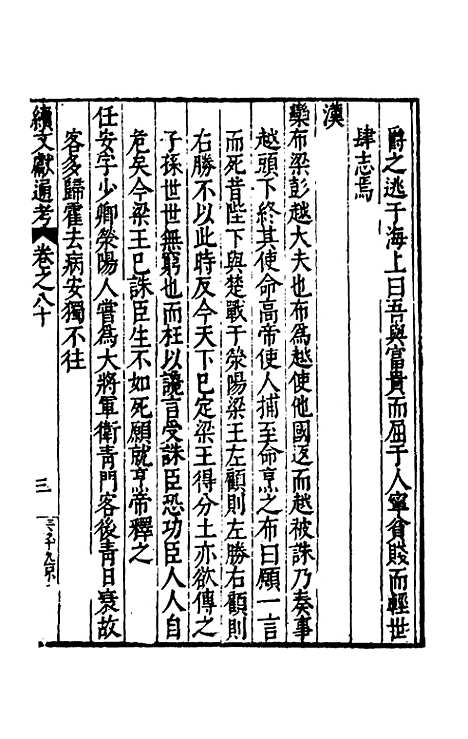 爵之逃于海上曰吾與富貴而屈于人寧貧賤而輕世
肆志焉
漢
欒布梁彭越大夫也布為越使他國返而越被誅乃奏事
越頭下終其使命高帝使人捕至命烹之布曰願一言
而死昔陛下與楚戰于滎陽梁王左顧則左勝右顧則
右勝不以此時反今天下已定梁王得分土亦欲傳之
子孫世世無窮也而枉以讒言受誅臣恐功臣人人自
危矣今梁王已誅臣生不如死願就亨帝釋之
任安字少卿滎陽人嘗為大將軍衛青門客後青日衰故
客多歸霍去病安獨不往
續文獻通考 卷之八十 三